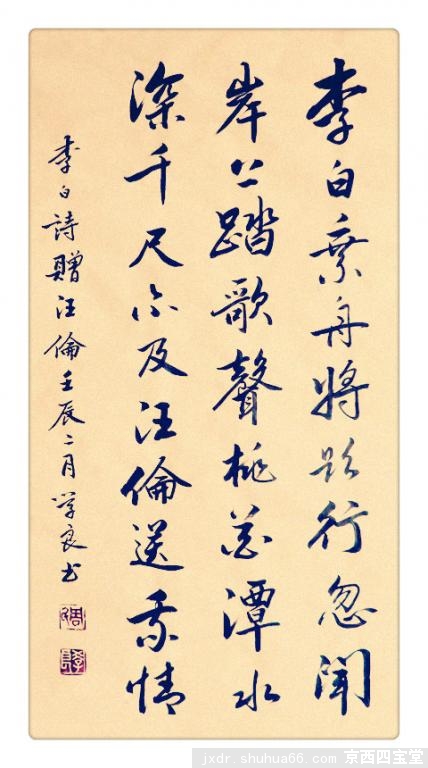 李白乘舟將欲行忽聞
岸上踏歌聲桃花潭水
深千尺不及汪倫送我情
李白詩贈汪倫壬辰二月学良书
jxdr.shuhua66.com 京西四宝堂